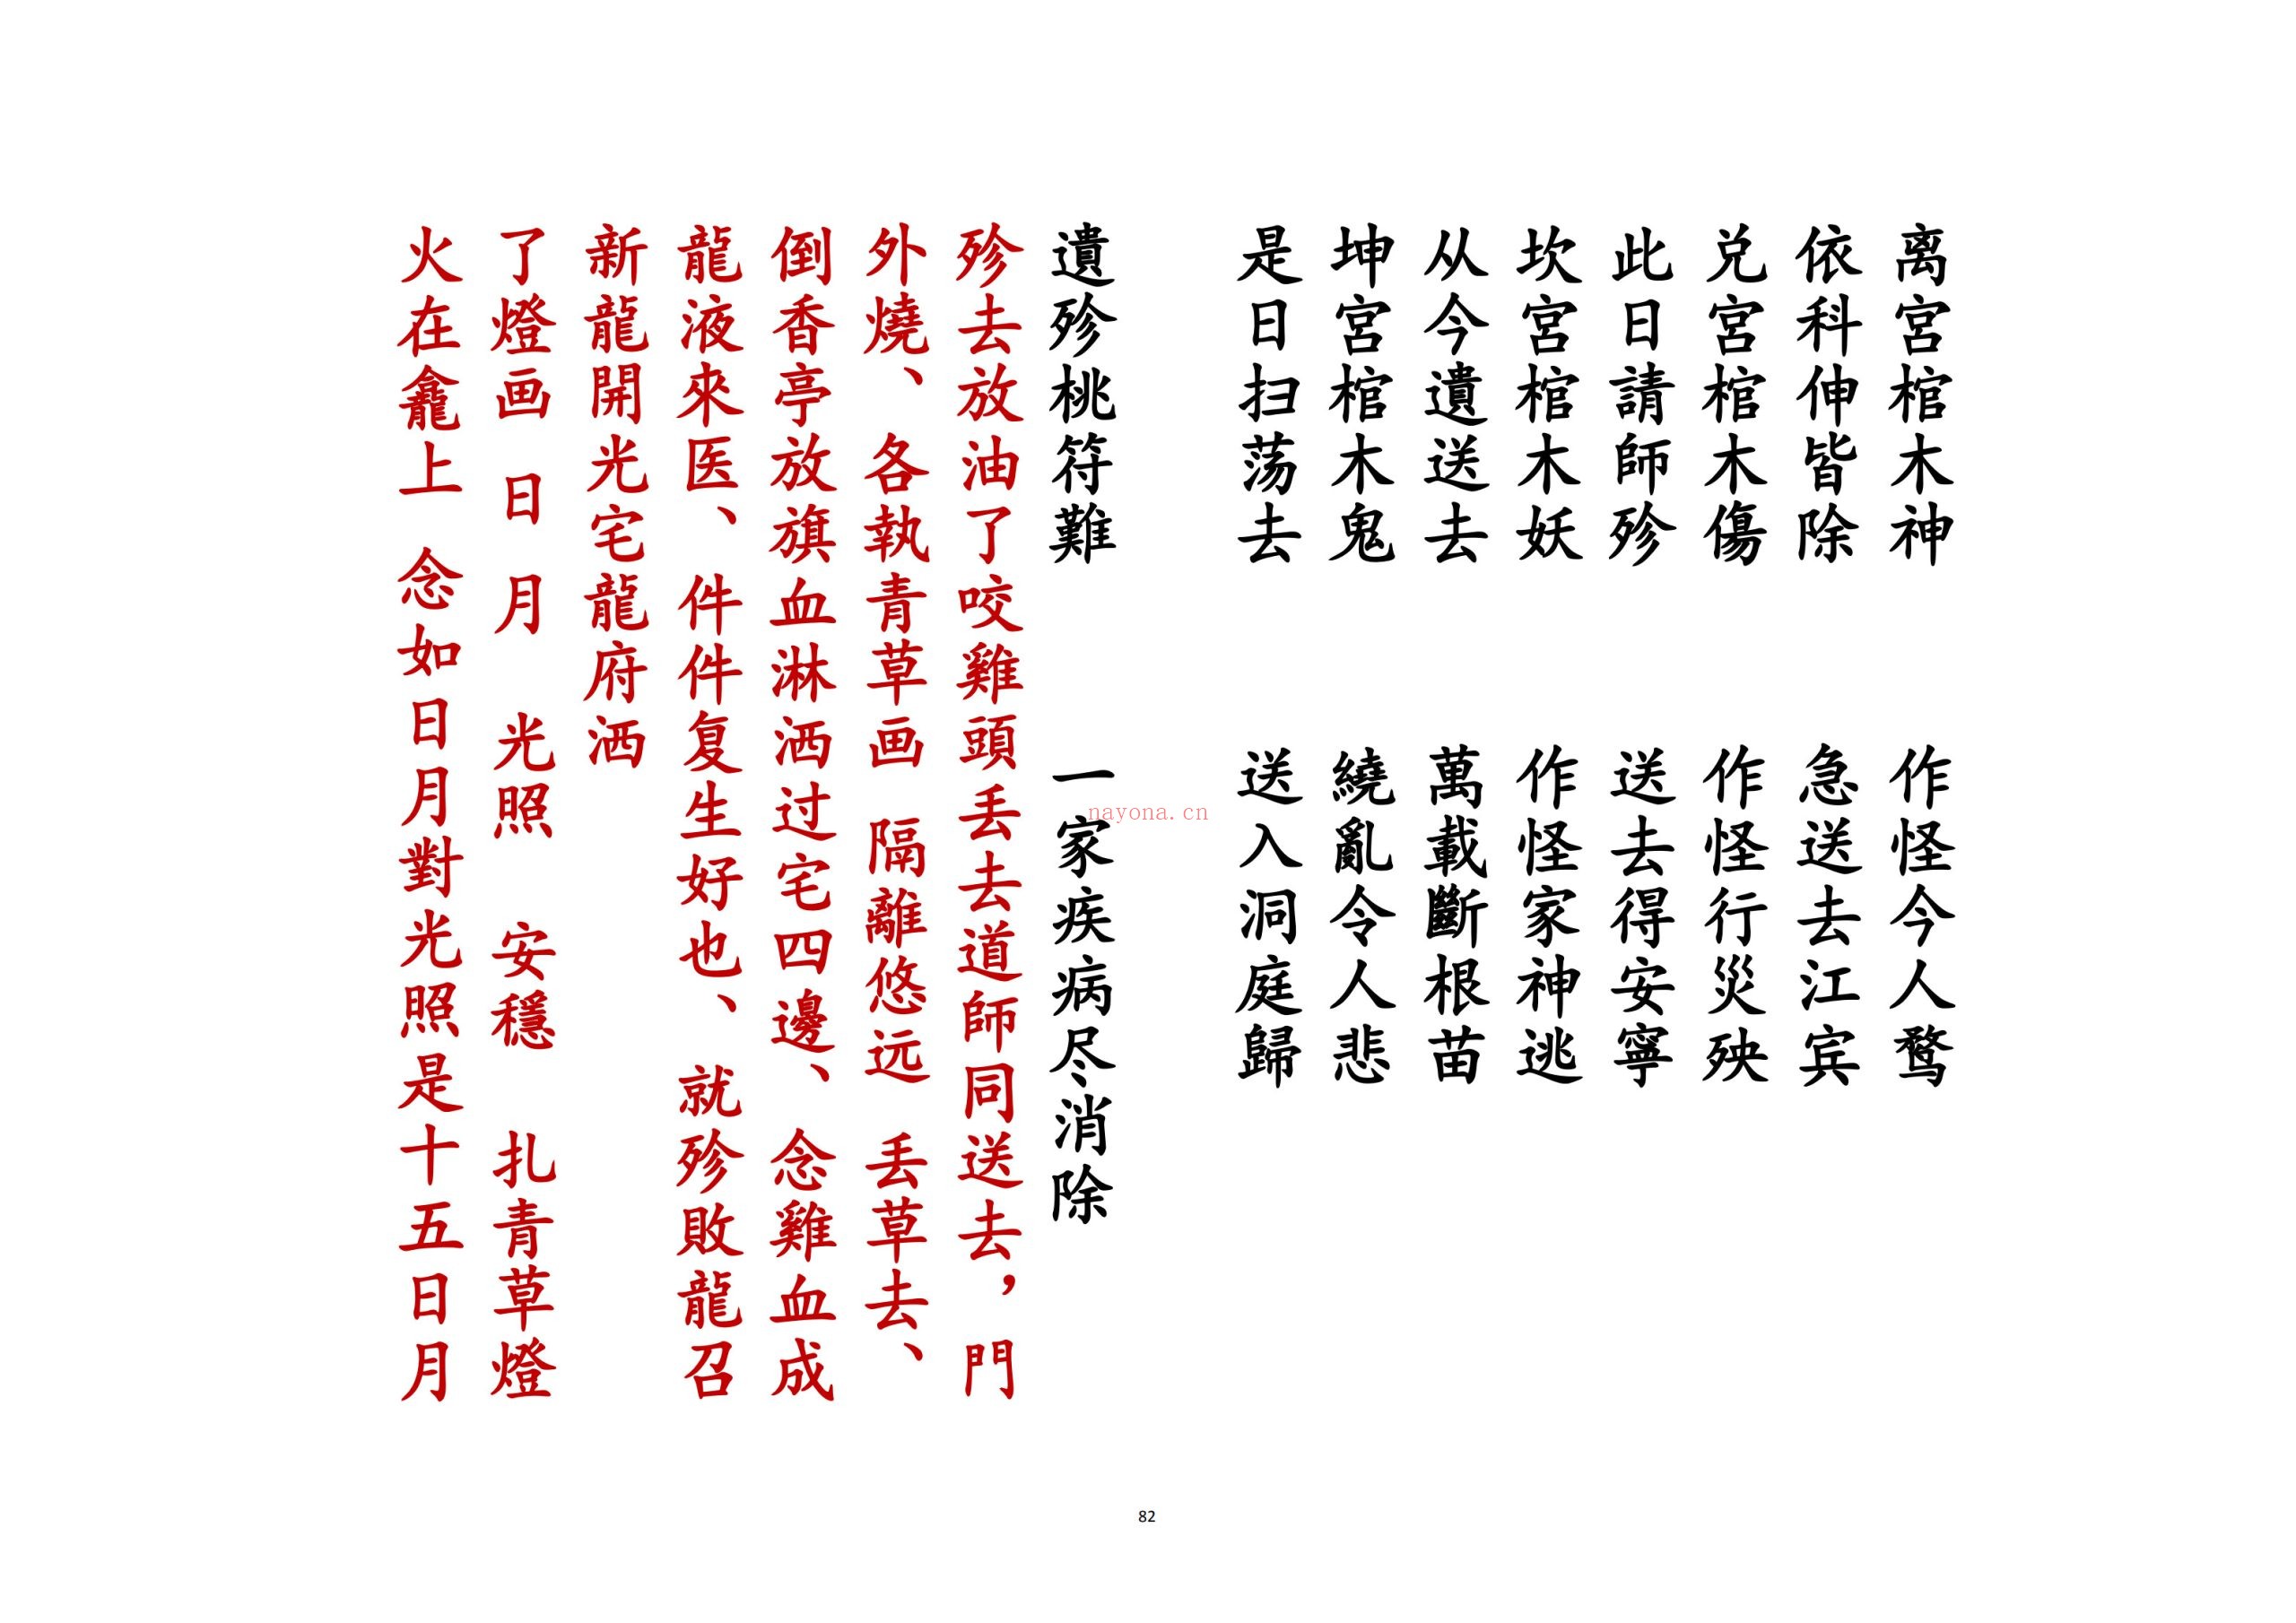 离宮棺木神 作怪今人鹜
依科伸皆除 急送去江宾
兑宮棺木傷 作怪行災殃
此日請師殄 送去得安寧
坎宮棺木妖 作怪家神逃
从今遺送去 萬載斷根苗
坤宮棺木鬼 繞亂令人悲
是日扫荡去 送入洞庭歸
遺殄桃符難 一家疾病尽消除
殄去放油了咬雞頭丢去道師同送去，門
外燒、各執青草画 隔離悠远 丢草去、
倒香亭放旗血淋洒过宅四邊、念雞血成
龍液來医、件件复生好也、就殄敗龍召
新龍開光宅龍府洒
了燈画 日 月 光照 安穩 扎青草燈
火在龕上 念如日月對光照是十五日月
nayona.cn
82